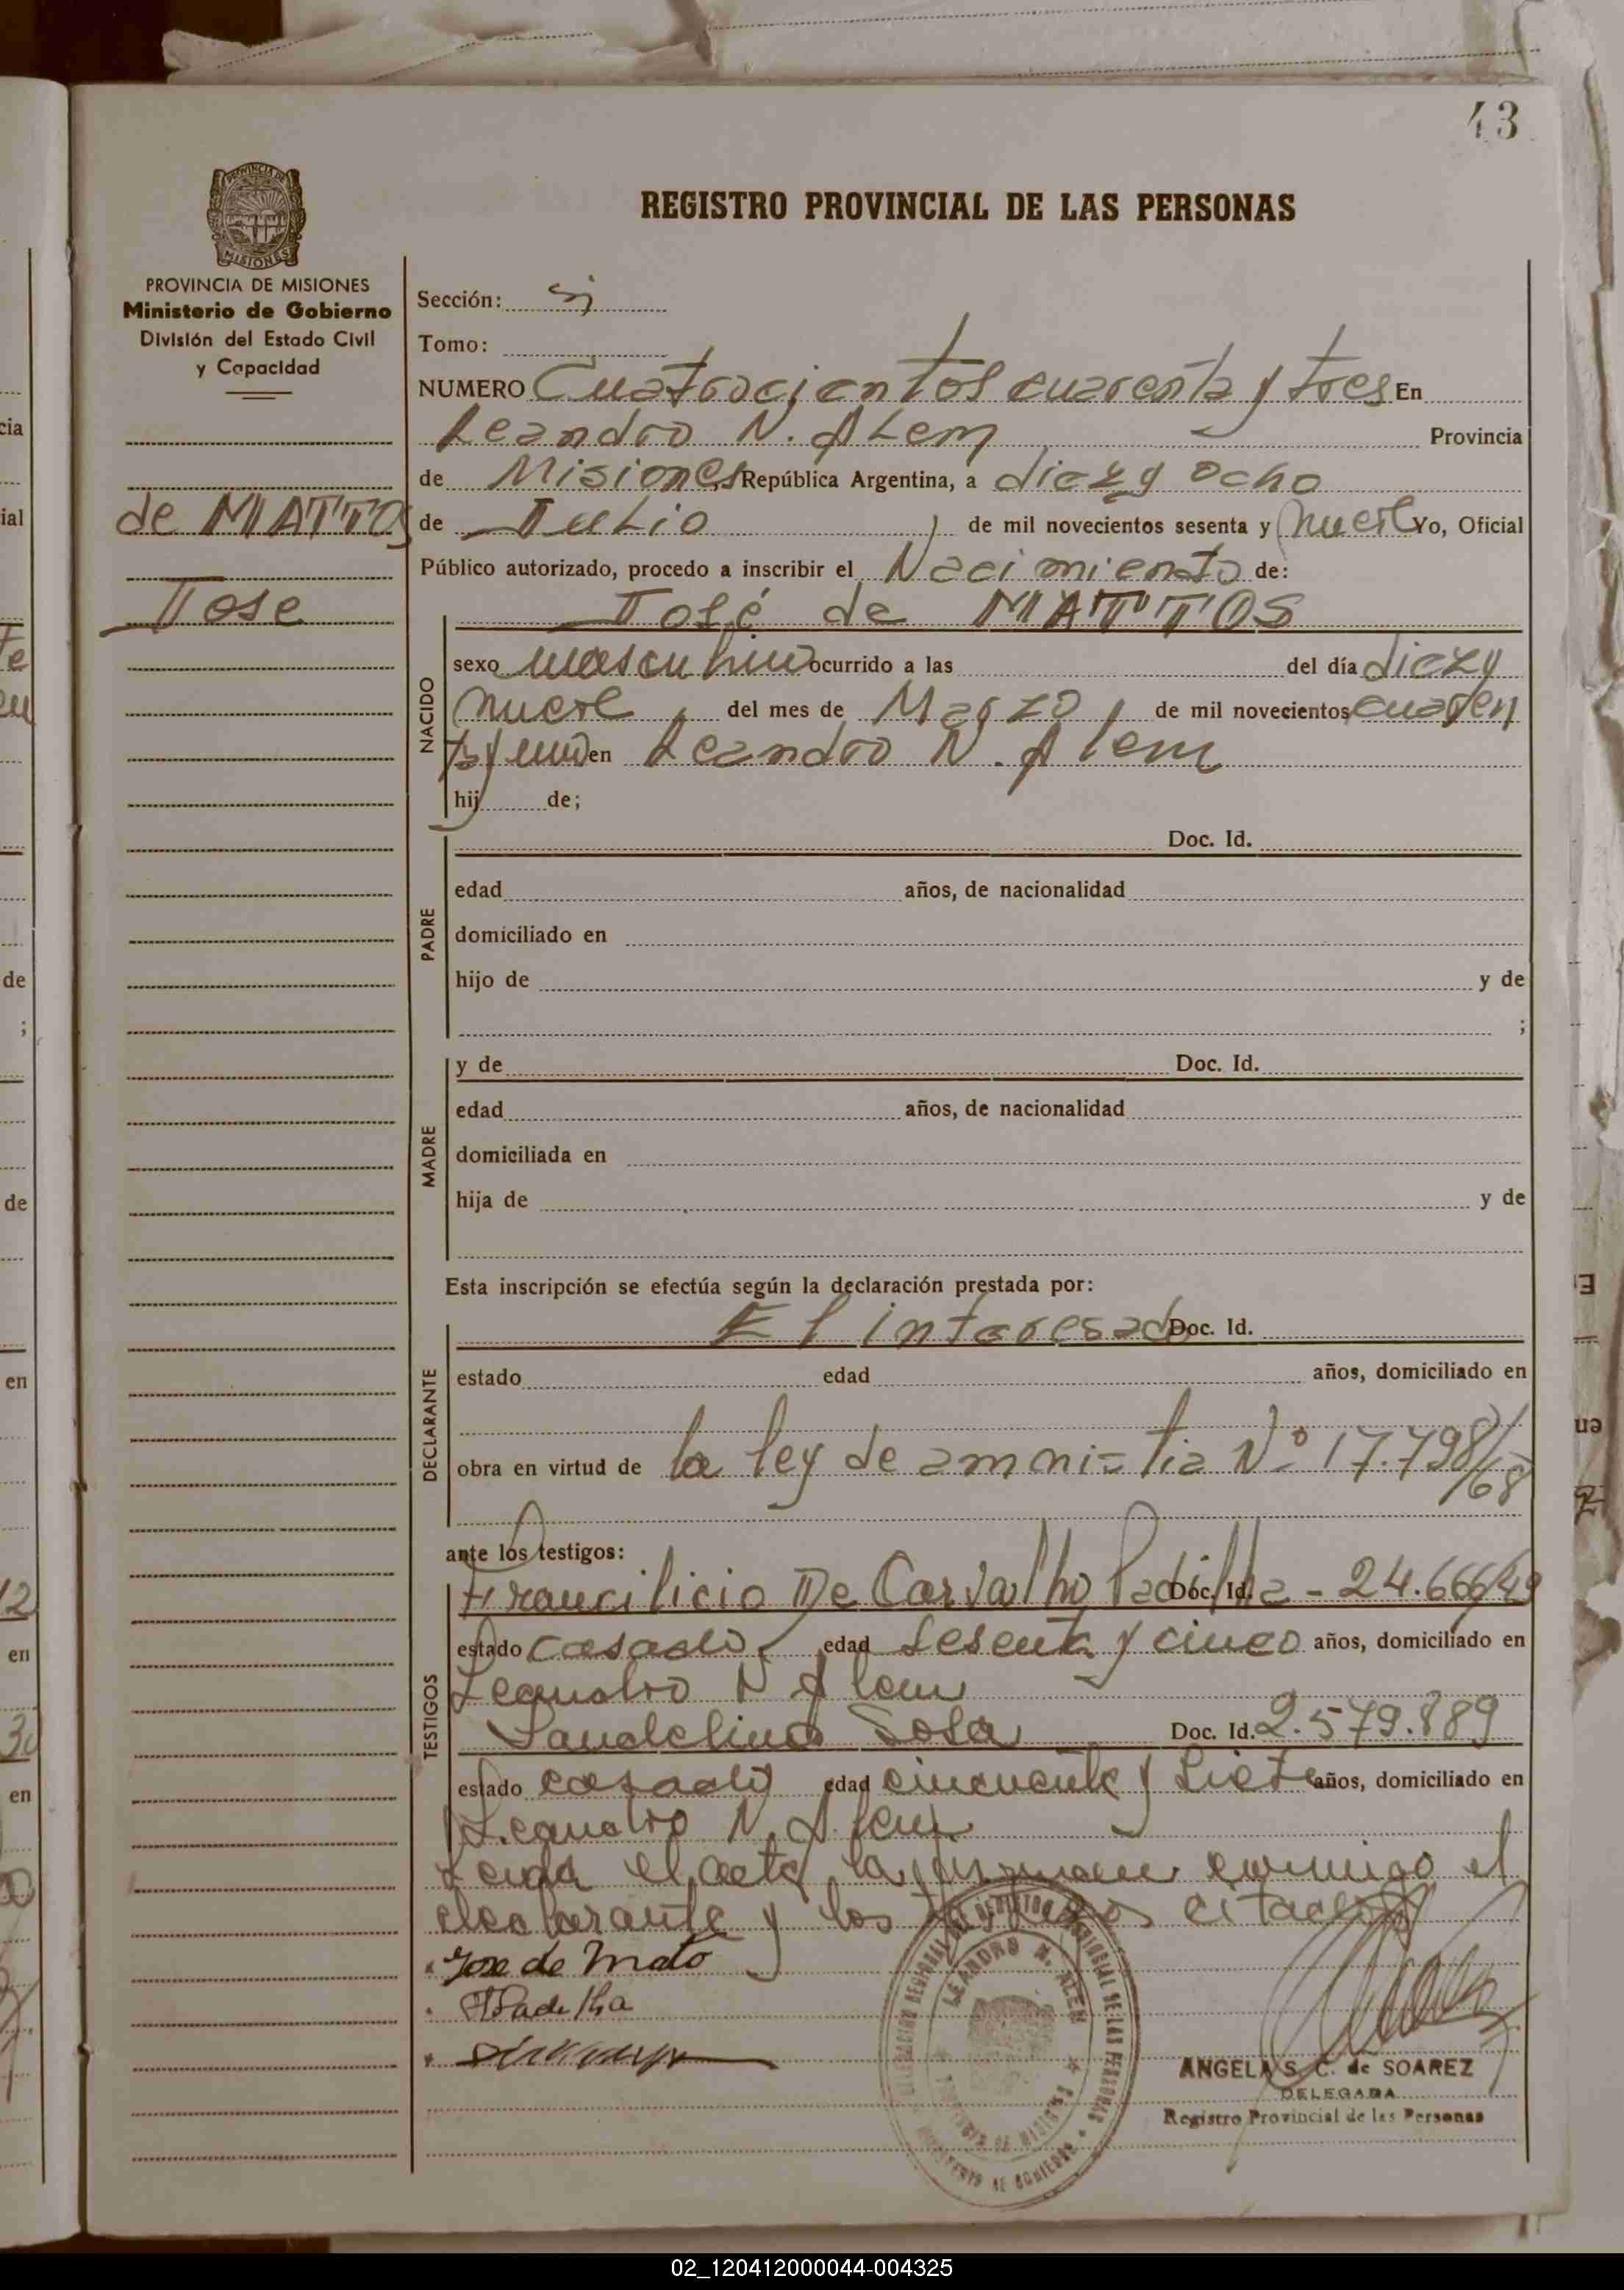 43
PROVINCIA DE
MISIONES
REGISTRO PROVINCIAL DE LAS PERSONAS
PROVINCIA DE MISIONES
Ministerio de Gobierno
División del Estado Civil
y Capacidad
Sección:
Tomo:
NUMERO Cuatrocientos cuarenta y tres En
Leandro N. ALem Provincia
de Misiones República Argentina, a diez y ocho
de MATTOS
de Julio, de mil novecientos sesenta y nueve Yo, Oficial
Público autorizado, procedo a inscribir el Nacimiento de:
Jose
José de MATTOS
NACIDO
sexo masculino ocurrido a las del día diez y
nueve, del mes de Marzo, de mil novecientos cuaren
ta y uno en Leandro N. Alem
hij de;
PADRE
Doc. Id.
edad años, de nacionalidad
domiciliado en
hijo de y de
;
MADRE
y de Doc. Id.
edad años, de nacionalidad
domiciliada en
hija de y de
Esta inscripción se efectúa según la declaración prestada por:
DECLARANTE
El interesado Doc. Id.
estado edad años, domiciliado en
obra en virtud de la ley de amnistia Nº 17.798/68
ante los testigos:
TESTIGOS
Francilicio De Carvalho Padilha Doc. Id. - 24.666/49
estado casado, edad sesenta y cinco años, domiciliado en
Leandro N Alem
Laudelino Sosa Doc. Id. 2.579.889
estado casado edad cincuenta y siete años, domiciliado en
Leandro N. Alem
Leida el acta la firman conmigo el
declarante y los testigos citados
Jose de Mato
FPadilha
DELEGACION REGIONAL DEL REGISTRO PROVINCIAL DE LAS PERSONAS
LEANDRO N. ALEM
PROVINCIA DE MISIONES
MINISTERIO DE GOBIERNO
ANGELA S. C. de SOAREZ
DELEGADA
Registro Provincial de las Personas
cia
ial
de
;
de
en
en
en
02_120412000044-004325